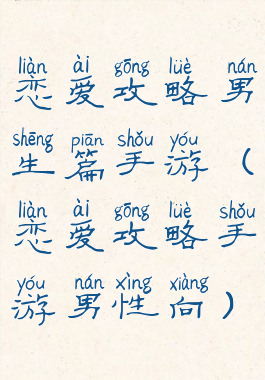 liàn ài gōng lüè nán
恋爱攻略男
shēng piān shǒu yóu
生篇手游（
liàn ài gōng lüè shǒu
恋爱攻略手
yóu nán xìng xiàng
游男性向）